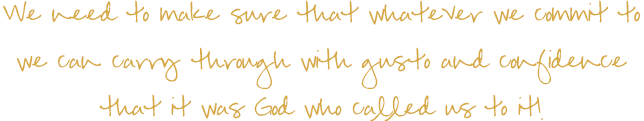 We need to make sure that whatever we commit to
we can carry through with gusto and confidence
that it was God who called us to it!